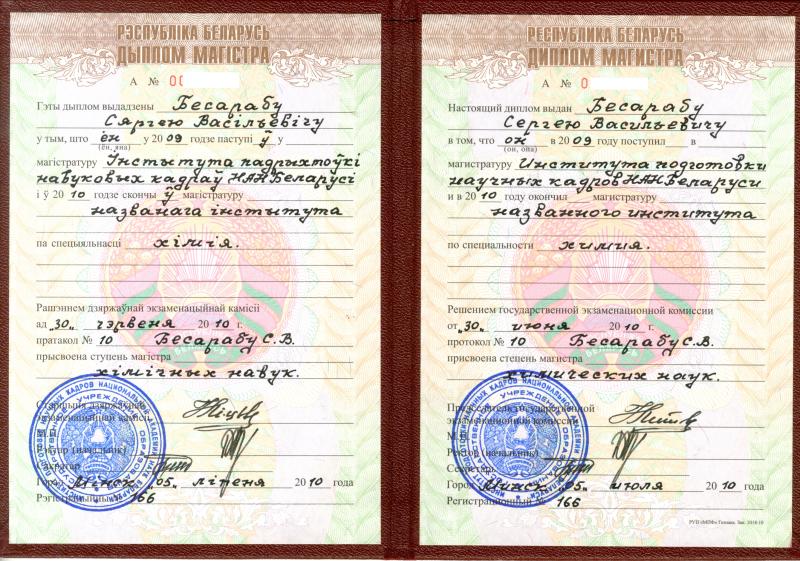 РЭСПУБЛІКА БЕЛАРУСЬ
ДЫПЛОМ МАГІСТРА
А № 00
Гэты дыплом выдадзены Бесарабу
Сяргею Васільевічу
у тым, што ён у 2009 годзе паступіў у
(ён, яна)
магістратуру Інстытута падрыхтоўкі
навуковых кадраў НАН Беларусі
і ў 2010 годзе скончыў магістратуру
названага інстытута
па спецыяльнасці хімія.
Рашэннем дзяржаўнай экзаменацыйнай камісіі
ад "30" чэрвеня 2010 г.
пратакол № 10 Бесарабу С.В.
прысвоена ступень магістра
хімічных навук.
Старшыня дзяржаўнай
экзаменацыйнай камісіі
М.П.
Рэктар (начальнік)
Сакратар
Горад Мінск "05" ліпеня 2010 года
Рэгістрацыйны № 166
РЕСПУБЛИКА БЕЛАРУСЬ
ДИПЛОМ МАГИСТРА
А № 0
Настоящий диплом выдан Бесарабу
Сергею Васильевичу
в том, что он в 2009 году поступил в
(он, она)
магистратуру Института подготовки
научных кадров НАН Беларуси
и в 2010 году окончил магистратуру
названного института
по специальности химия.
Решением государственной экзаменационной комиссии
от "30" июня 2010 г.
протокол № 10 Бесарабу С.В.
присвоена степень магистра
химических наук.
Председатель государственной
экзаменационной комиссии
М.П.
Ректор (начальник)
Секретарь
Город Минск "05" июля 2010 года
Регистрационный № 166